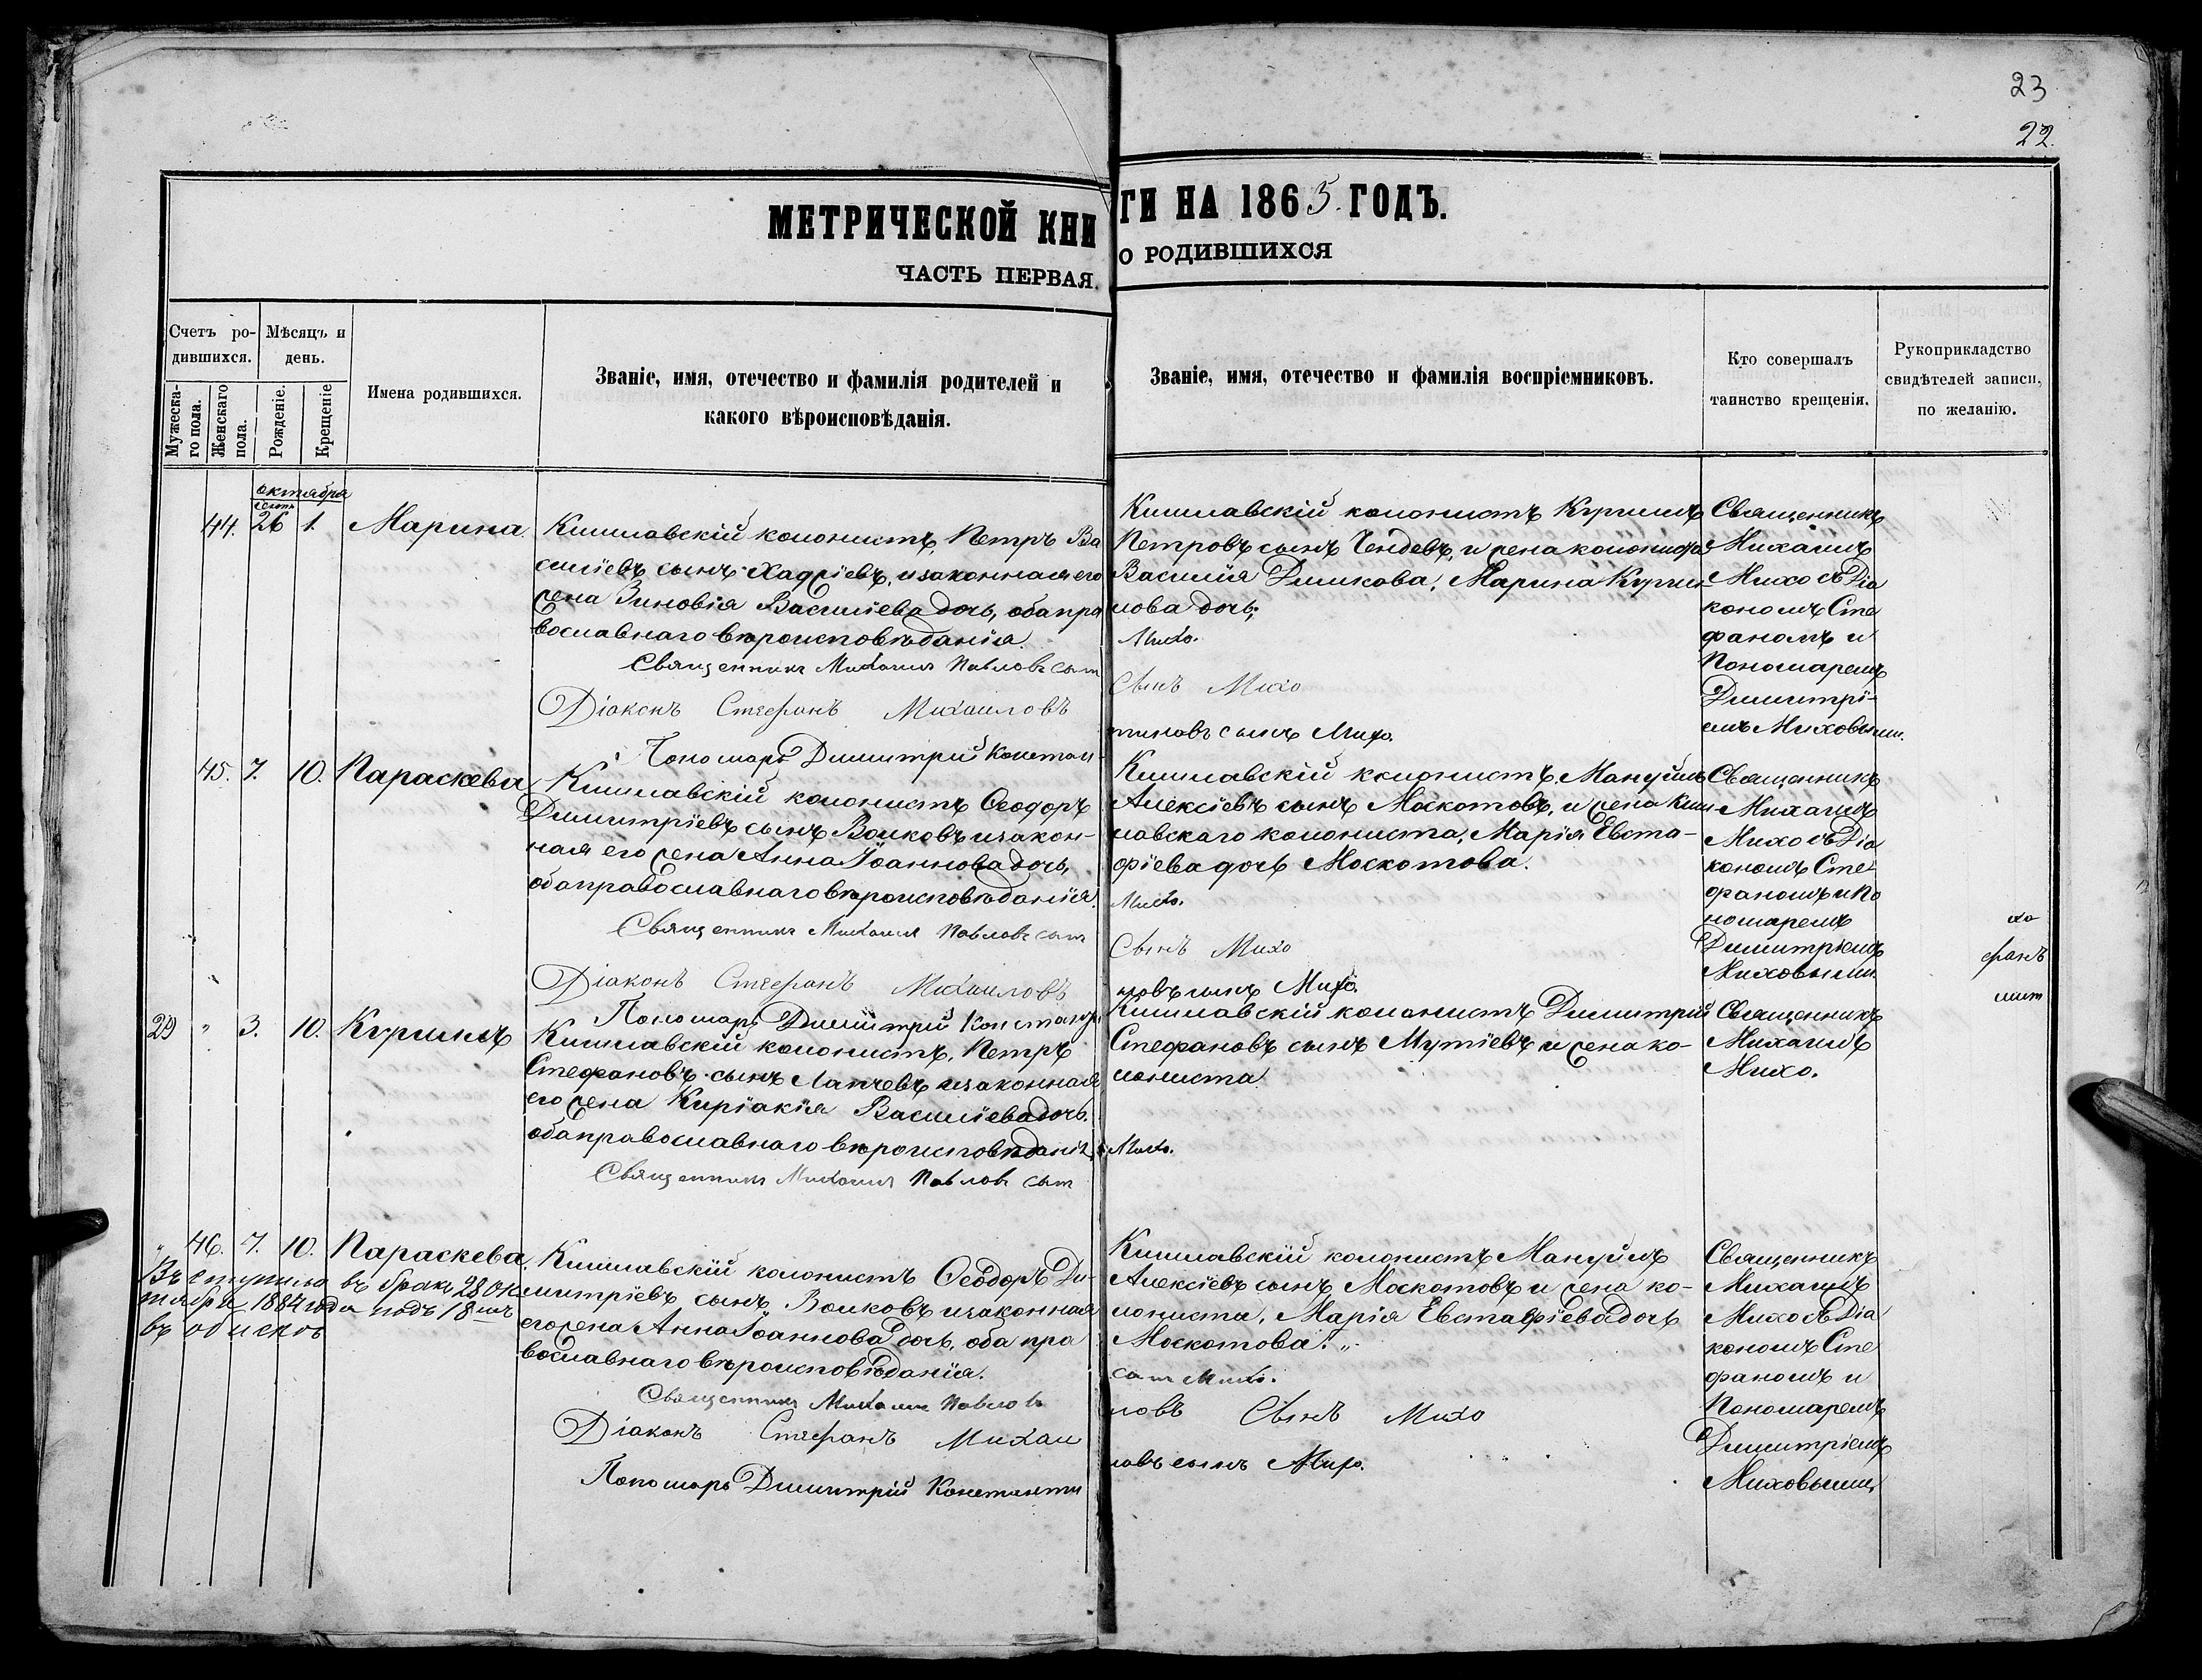 23
22.
МЕТРИЧЕСКОЙ КНИГИ НА 1865 ГОДЪ.
ЧАСТЬ ПЕРВАЯ. О РОДИВШИХСЯ
Счетъ родившихся.
Мужескаго пола.
Женскаго пола.
Мѣсяцъ и день.
Рожденіе.
Крещеніе
Имена родившихся.
Званіе, имя, отечество и фамилія родителей и
какого вѣроисповѣданія.
Званіе, имя, отечество и фамилія воспріемниковъ.
Кто совершалъ
таинство крещенія.
Рукоприкладство
свидѣтелей записи,
по желанію.
октября
44. 26 1. Марина.
Кишлавскій колонистъ, Петръ Ва
силіевъ сынъ Хаджіевъ, и законная его
жена Зиновія Василіева дочь, оба пра
вославнаго вѣроисповѣданія.
Священникъ Михаилъ Павловъ сын
Діаконъ Стефанъ Михаиловъ
Пономарь Димитрій Констан-
Кишлавскій колонистъ Кириллъ
Петровъ сынъ Чендевъ, и жена колониста
Василія Димкова, Марина Кирил-
лова дочь;
Михо.
Сынъ Михо
тиновъ сынъ Михо.
Священникъ
Михаилъ
Михо съ Діа
кономъ Сте
фаномъ и
Пономаремъ
Димитрі-
емъ Миховыми.
45. 7. 10. Параскева
Кишлавскій колонистъ Ѳеодоръ
Димитріевъ сынъ Волковъ и закон-
ная его жена Анна Іоаннова дочь,
оба православнаго вѣроисповѣданія.
Священникъ Михаилъ Павловъ сын
Діаконъ Стефанъ Михаиловъ
Пономарь Димитрій Константи
Кишлавскій колонистъ, Мануйлъ
Алексіевъ сынъ Москотовъ, и жена Киш
лавскаго колониста, Марія Евста-
фіева дочь Москотова.
Михо.
Сынъ Михо
новъ сынъ Михо.
Священникъ
Михаилъ
Михо съ Діа
кономъ Сте-
фаномъ и По
номаремъ
Димитріемъ
Миховыми.
хо
фанъ
29 " 3. 10. Кириллъ
Кишлавскій колонистъ, Петръ
Стефановъ сынъ Лапчевъ и законная
его жена Киріакія Василіева дочь.
оба православнаго вѣроисповѣданія.
Священникъ Михаилъ Павловъ сын
Кишлавскій колонистъ Димитрій
Стефановъ сынъ Мутіевъ и жена ко-
лониста
Михо.
Священникъ
Михаилъ
Михо.
" 46. 7. 10. Параскева.
Вступила въ бракъ 28 Ок
тября 1884 года подъ 18 мъ
Кишлавскій колонистъ Ѳеодоръ Ди-
митріевъ сынъ Волковъ и законная
его жена Анна Іоаннова дочь, оба пра
вославнаго вѣроисповѣданія.
Священникъ Михаилъ Павловъ
Діаконъ Стефанъ Михаи
Пономарь Димитрій Константи
Кишлавскій колонистъ Мануйлъ
Алексіевъ сынъ Москотовъ и жена ко-
лониста, Марія Евстафіева дочь
Москотова.
сын Михо.
ловъ Сынъ Михо
новъ сынъ Михо.
Священникъ
Михаилъ
Михо съ Діа
кономъ Сте
фаномъ и
Пономаремъ
Димитріемъ
Миховыми,